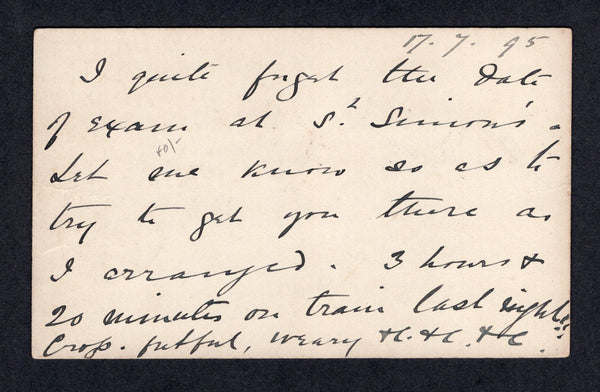 17. 7. 95
I quite forget the date
of exam at St. Simon's.
40/-
Let me know so as to
try to get you there as
I arranged. 3 hours &
20 minutes on train last night!!
Crop. fitful, weary &c. &c. &c.